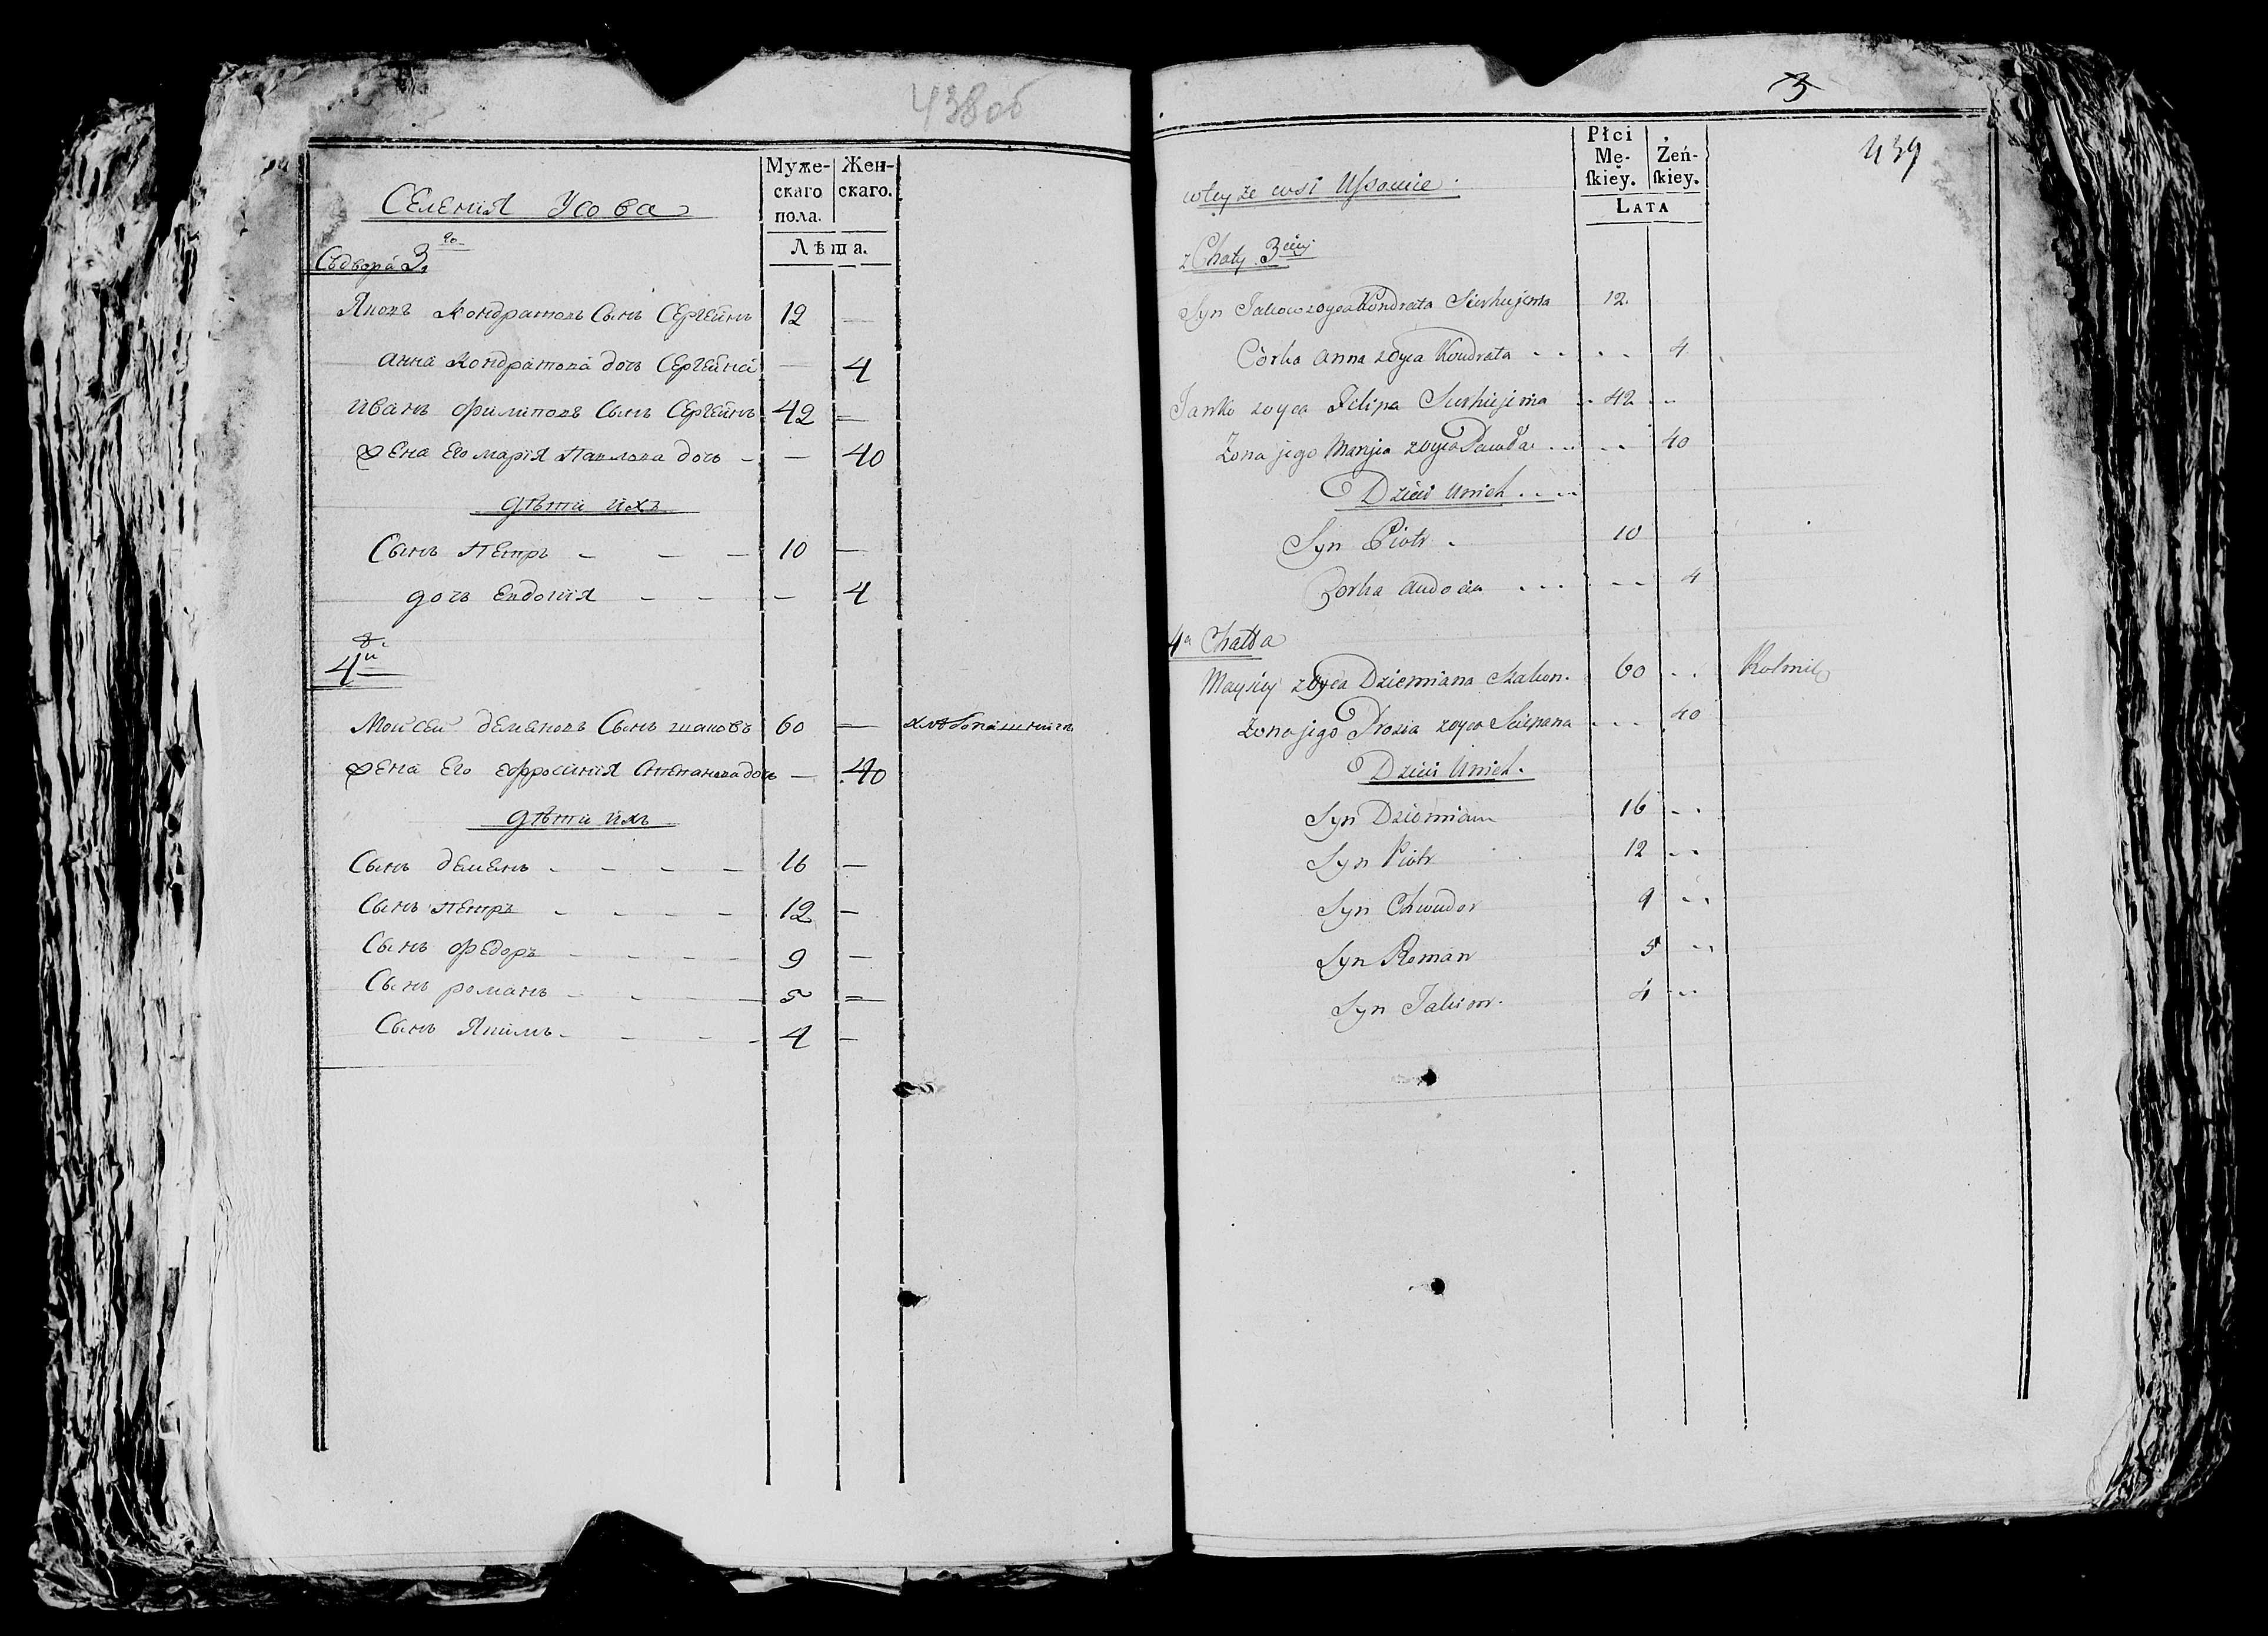 438об
Муже-
скаго
пола.
Жен-
скаго.
Лѣта.
Селенія Усова
Съ двора 3го
Яковъ Кондратовъ Сынъ Сергейнъ 12 —
анна Кондратова дочь Сергейна — 4
иванъ филиповъ Сынъ Сергейнъ 42 —
жена Его марія Павлова дочь — — 40
дѣти ихъ
Сынъ Петръ — — — 10 —
дочь Евдокія — — — — 4
4й
Мойсей деменовъ Сынъ шаковъ 60 — хлѣбопашникъ
жена Его ефросинія Степанова дочь — 40
дѣти ихъ
Сынъ деменъ — — — — 16 —
Сынъ Петръ — — — — 12 —
Сынъ федоръ — — — — 9 —
Сынъ романъ — — — — 5 —
Сынъ Якимъ — — — — 4 —
3
439
Płci
Mę-
ſkiey.
Żeń-
ſkiey.
LATA
wtey że wsi Ussowie
z Chaty 3ciey
Syn Jakow zoyca Kondrata Sierhiejenia 12.
Córka anna zoyca Kondrata 4
Janko zoyca Filipa Sierhiejenia 42
Żona jego Maryia zoyca Pawła 40
Dzieci Unich
Syn Piotr 10
Zorka audocia 4
4a Chatta
Maysiey zoyca Dziemiana Szakon. 60 Rolnik
żona jego Prozia zoyca Sciepana 40
Dzieci Unich.
Syn Dziemian 16
Syn Piotr 12
Syn Chwiedor 9
Syn Roman 5
Syn Jakim. 4